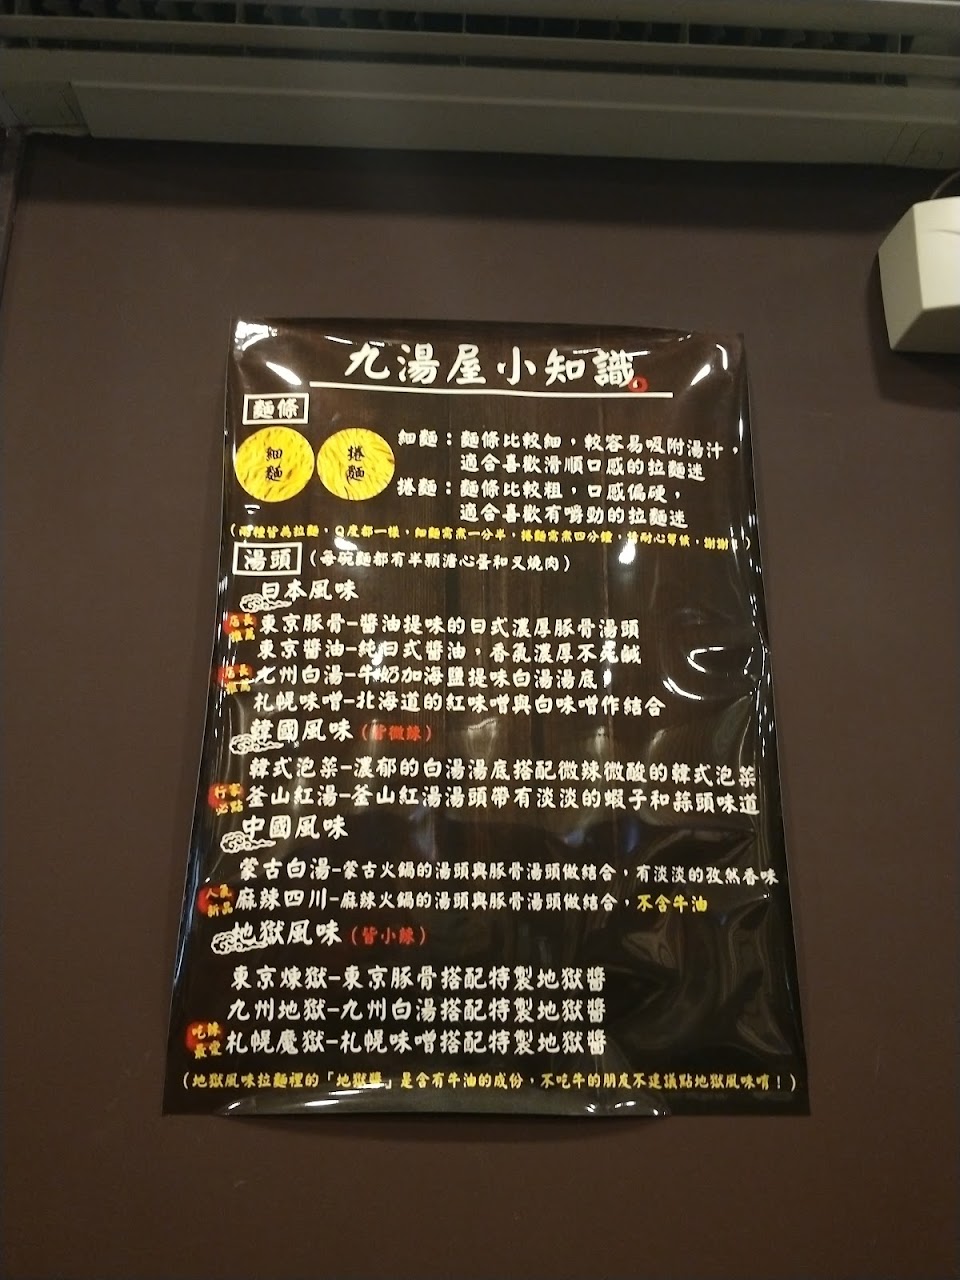 九湯屋小知識
麵條
細麵
捲麵
細麵：麵條比較細，較容易吸附湯汁，
適合喜歡滑順口感的拉麵迷
捲麵：麵條比較粗，口感偏硬，
適合喜歡有嚼勁的拉麵迷
（兩種皆為拉麵，Q度都一樣，細麵需煮一分半，捲麵需煮四分鐘，請耐心等候，謝謝！）
湯頭（每碗麵都有半顆溏心蛋和叉燒肉）
日本風味
店長推薦 東京豚骨-醬油提味的日式濃厚豚骨湯頭
東京醬油-純日式醬油，香氣濃厚不死鹹
店長推薦 九州白湯-牛奶加海鹽提味白湯湯底，
札幌味噌-北海道的紅味噌與白味噌作結合
韓國風味（皆微辣）
韓式泡菜-濃郁的白湯湯底搭配微辣微酸的韓式泡菜
行家必點 釜山紅湯-釜山紅湯湯頭帶有淡淡的蝦子和蒜頭味道
中國風味
蒙古白湯-蒙古火鍋的湯頭與豚骨湯頭做結合，有淡淡的孜然香味
人氣新品 麻辣四川-麻辣火鍋的湯頭與豚骨湯頭做結合，不含牛油
地獄風味（皆小辣）
東京煉獄-東京豚骨搭配特製地獄醬
九州地獄-九州白湯搭配特製地獄醬
吃辣最愛 札幌魔獄-札幌味噌搭配特製地獄醬
（地獄風味拉麵裡的「地獄醬」是含有牛油的成份，不吃牛的朋友不建議點地獄風味唷！）